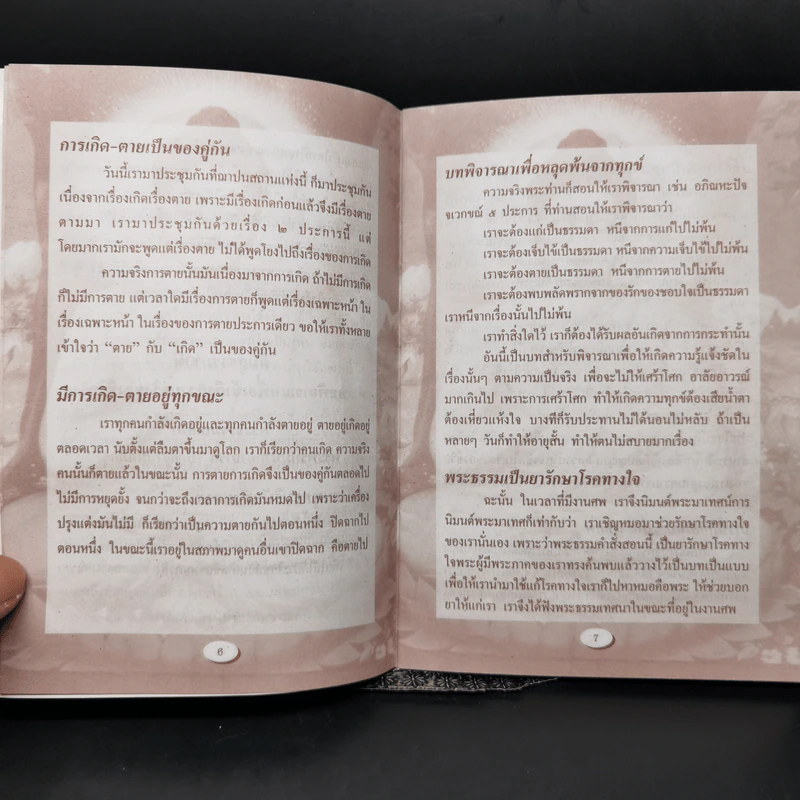 การเกิด-ตายเป็นของคู่กัน
วันนี้เรามาประชุมกันที่ฌาปนสถานแห่งนี้ ก็มาประชุมกัน
เนื่องจากเรื่องเกิดเรื่องตาย เพราะมีเรื่องเกิดก่อนแล้วจึงมีเรื่องตาย
ตามมา เรามาประชุมกันด้วยเรื่อง ๒ ประการนี้ แต่
โดยมากเรามักจะพูดแต่เรื่องตาย ไม่ได้พูดโยงไปถึงเรื่องของการเกิด
ความจริงการตายนั้นมันเนื่องมาจากการเกิด ถ้าไม่มีการเกิด
ก็ไม่มีการตาย แต่เวลาใดมีเรื่องการตายก็พูดแต่เรื่องเฉพาะหน้า ใน
เรื่องเฉพาะหน้า ในเรื่องของการตายประการเดียว ขอให้เราทั้งหลาย
เข้าใจว่า “ตาย” กับ “เกิด” เป็นของคู่กัน
มีการเกิด-ตายอยู่ทุกขณะ
เราทุกคนกำลังเกิดอยู่และทุกคนกำลังตายอยู่ ตายอยู่เกิดอยู่
ตลอดเวลา นับตั้งแต่ลืมตาขึ้นมาดูโลก เราก็เรียกว่าคนเกิด ความจริง
คนนั้นก็ตายแล้วในขณะนั้น การตายการเกิดจึงเป็นของคู่กันตลอดไป
ไม่มีการหยุดยั้ง จนกว่าจะถึงเวลาการเกิดมันหมดไป เพราะว่าเครื่อง
ปรุงแต่งมันไม่มี ก็เรียกว่าเป็นความตายกันไปตอนหนึ่ง ปิดฉากไป
ตอนหนึ่ง ในขณะนี้เราอยู่ในสภาพมาดูคนอื่นเขาปิดฉาก คือตายไป
6
บทพิจารณาเพื่อหลุดพ้นจากทุกข์
ความจริงพระท่านก็สอนให้เราพิจารณา เช่น อภิณหะปัจ
จเวกขณ์ ๕ ประการ ที่ท่านสอนให้เราพิจารณาว่า
เราจะต้องแก่เป็นธรรมดา หนีจากการแก่ไปไม่พ้น
เราจะต้องเจ็บไข้เป็นธรรมดา หนีจากความเจ็บไข้ไปไม่พ้น
เราจะต้องตายเป็นธรรมดา หนีจากการตายไปไม่พ้น
เราจะต้องพบพลัดพรากจากของรักของชอบใจเป็นธรรมดา
เราหนีจากเรื่องนั้นไปไม่พ้น
เราทำสิ่งใดไว้ เราก็ต้องได้รับผลอันเกิดจากการกระทำนั้น
อันนี้เป็นบทสำหรับพิจารณาเพื่อให้เกิดความรู้แจ้งชัดใน
เรื่องนั้นๆ ตามความเป็นจริง เพื่อจะไม่ให้เศร้าโศก อาลัยอาวรณ์
มากเกินไป เพราะการเศร้าโศก ทำให้เกิดความทุกข์ต้องเสียน้ำตา
ต้องเหี่ยวแห้งใจ บางทีก็รับประทานไม่ได้นอนไม่หลับ ถ้าเป็น
หลายๆ วันก็ทำให้อายุสั้น ทำให้ตนไม่สบายมากเรื่อง
พระธรรมเป็นยารักษาโรคทางใจ
ฉะนั้น ในเวลาที่มีงานศพ เราจึงนิมนต์พระมาเทศน์การ
นิมนต์พระมาเทศก็เท่ากับว่า เราเชิญหมอมาช่วยรักษาโรคทางใจ
ของเรานั่นเอง เพราะว่าพระธรรมคำสั่งสอนนี้ เป็นยารักษาโรคทาง
ใจพระผู้มีพระภาคของเราทรงค้นพบแล้ววางไว้เป็นบทเป็นแบบ
เพื่อให้เรานำมาใช้แก้โรคทางใจเราก็ไปหาหมอคือพระ ให้ช่วยบอก
ยาให้แก่เรา เราจึงได้ฟังพระธรรมเทศนาในขณะที่อยู่ในงานศพ
7